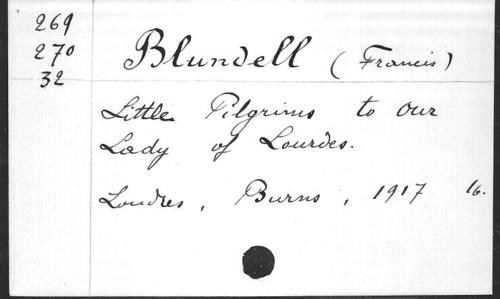 269
270
32
Blundell (Francis)
Little Pilgrims to Our
Lady of Lourdes.
Londres, Burns, 1917 16.